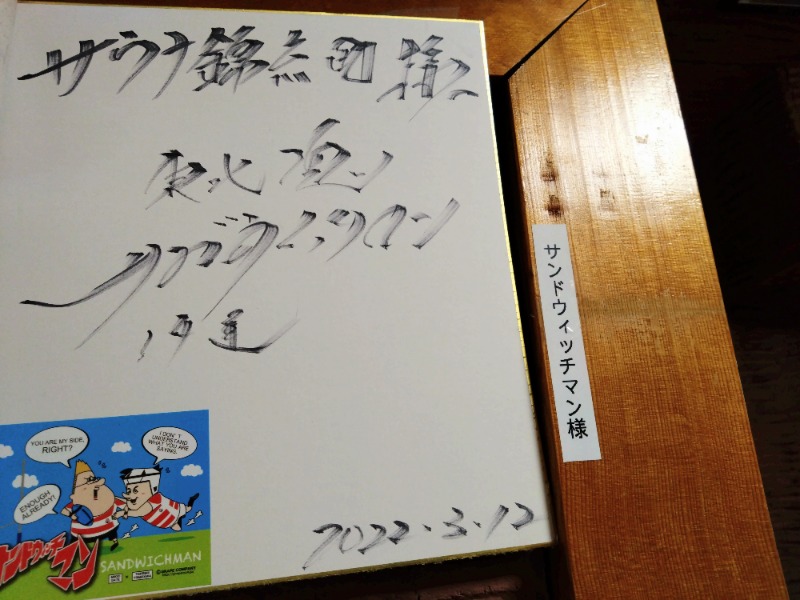 サウナ錦糸町 様
東北 魂ッ
サンドウィッチマン
伊達
2022.3.12
サンドウィッチマン様
YOU ARE MY SIDE,
RIGHT?
I DON'T
UNDERSTAND
WHAT YOU ARE
SAYING.
ENOUGH
ALREADY!
サンドウィッチマン
SANDWICHMAN